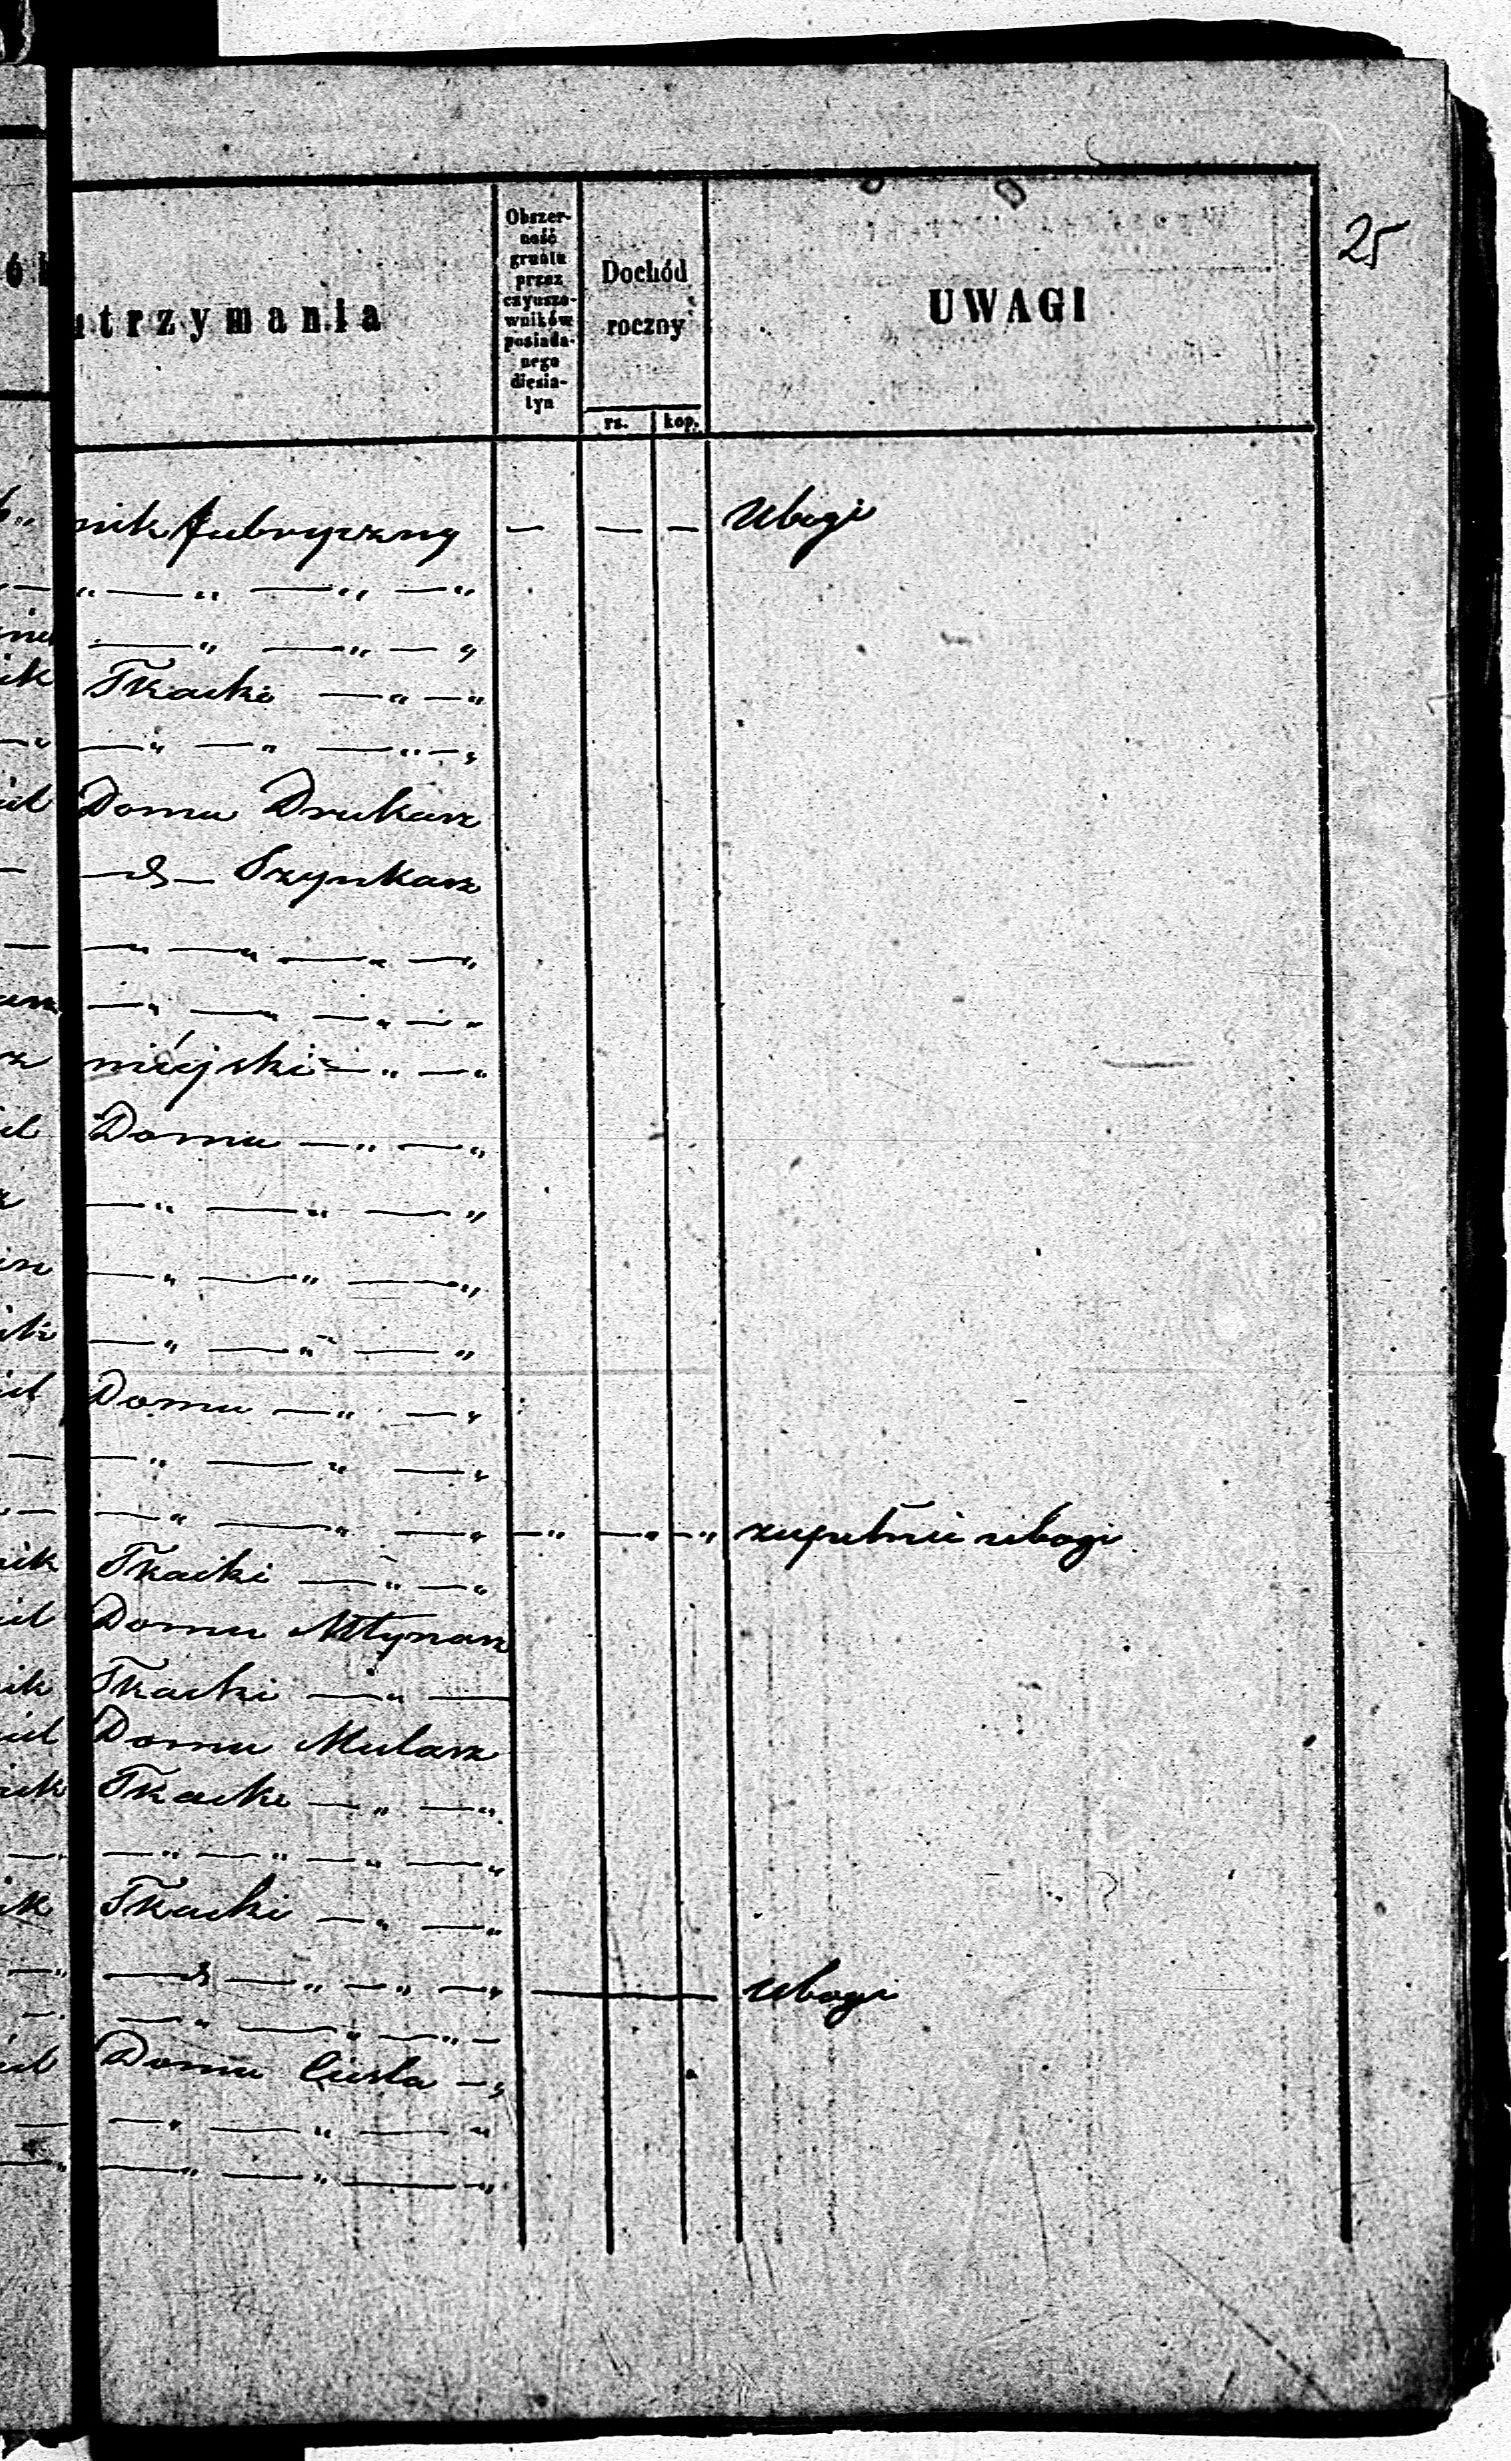 25
utrzymania
Obszer-
ność
gruntu
przez
czynszo-
wników
posiada-
nego
diesia-
tyn
Dochód
roczny
rs. kop.
UWAGI
nik fabryczny — — — Ubogi
" — " — " — "
— " — " — "
ik Tkacki — " — "
— " — " — " — "
iel Domu Drukarz
— d — Szynkarz
— " — " — " — "
— " — " — " — "
rz miejski — " — "
iel Domu — " — "
— " — " — "
— " — " — "
— " — " — "
iel Domu — " — "
— " — " — "
— " — " — " — " — " — " zupełnie ubogi
nik Tkacki — " — "
iel Domu Młynarz
ik Tkacki — " —
iel Domu Mularz
nik Tkacki — " — "
— " — " — " — "
ik Tkacki — " — "
— d — " — " — " — Ubogi
— " — " — " —
iel Domu Cieśla — "
— " — " — "
— " — " — "